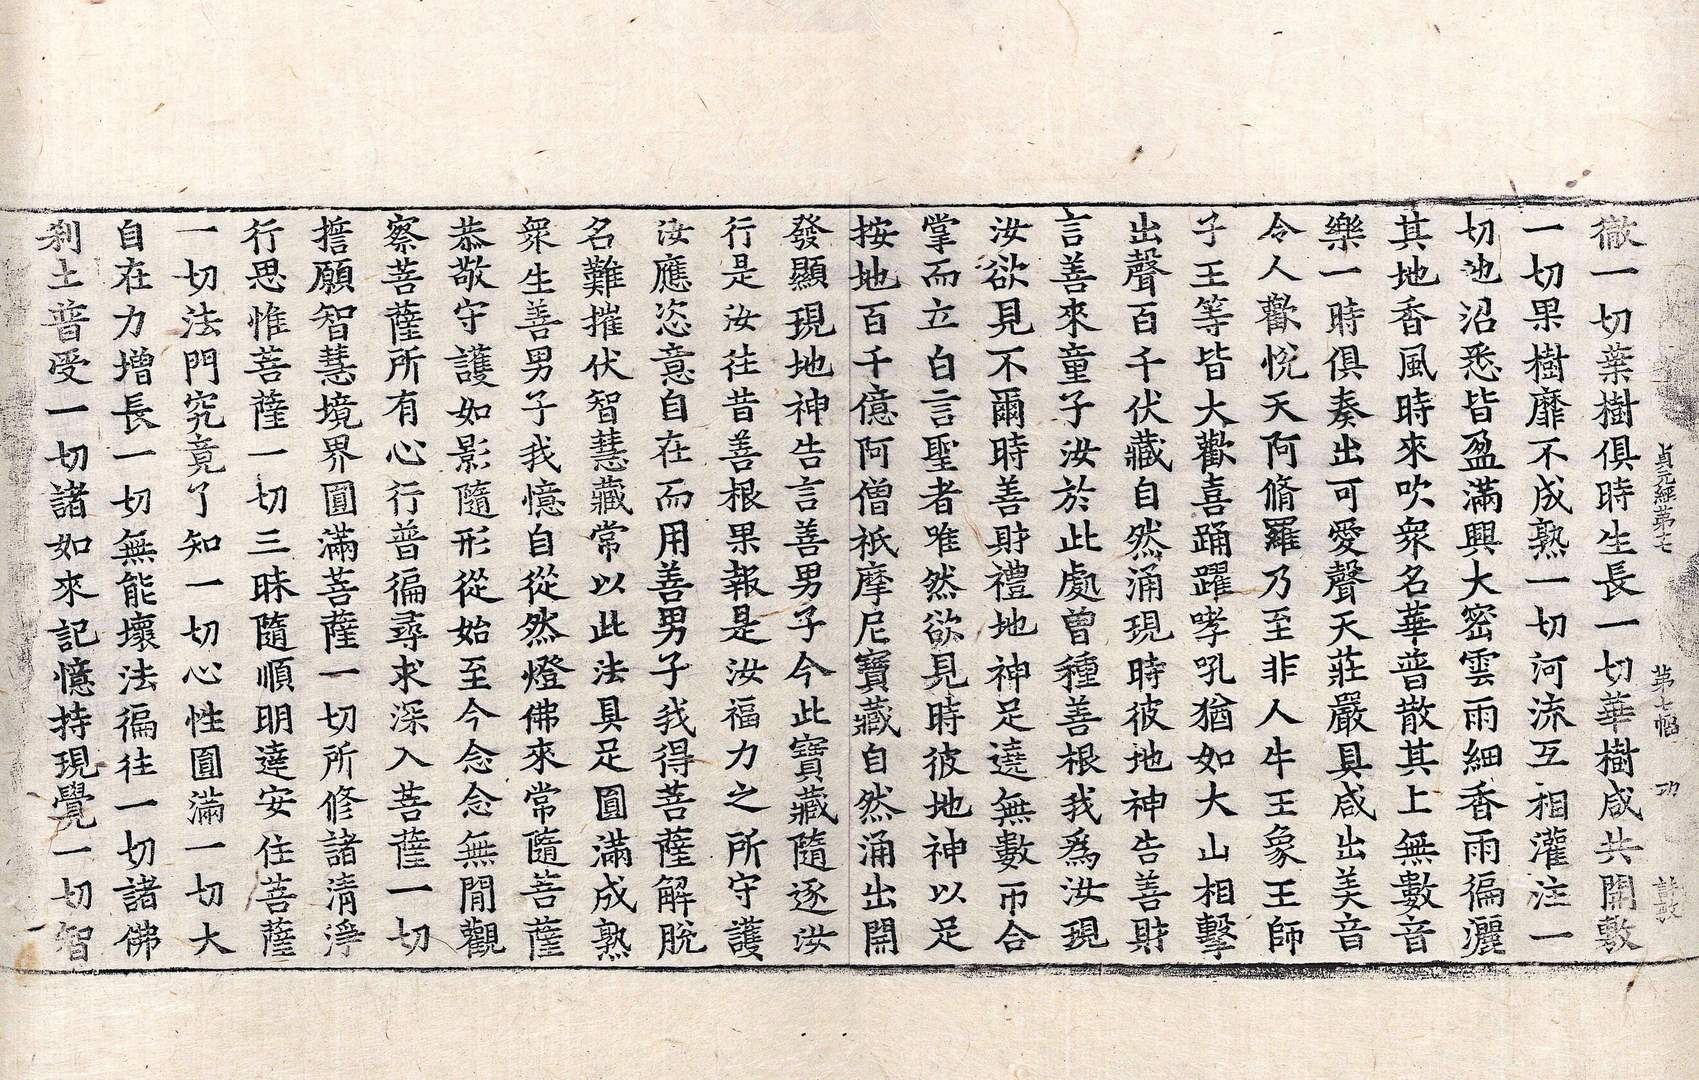 貞元經第七 第七幅 功
徹一切葉樹俱時生長一切華樹咸共開敷
一切果樹靡不成熟一切河流互相灌注一
切池沼悉皆盈滿興大密雲雨細香雨徧灑
其地香風時來吹衆名華普散其上無數音
樂一時俱奏出可愛聲天莊嚴具咸出美音
令人歡悅天阿脩羅乃至非人牛王象王師
子王等皆大歡喜踊躍哮吼猶如大山相擊
出聲百千伏藏自然涌現時彼地神告善財
言善來童子汝於此處曾種善根我爲汝現
汝欲見不爾時善財禮地神足遶無數帀合
掌而立白言聖者唯然欲見時彼地神以足
按地百千億阿僧祇摩尼寶藏自然涌出開
發顯現地神告言善男子今此寶藏隨逐汝
行是汝往昔善根果報是汝福力之所守護
汝應恣意自在而用善男子我得菩薩解脫
名難摧伏智慧藏常以此法具足圓滿成熟
衆生善男子我憶自從然燈佛來常隨菩薩
恭敬守護如影隨形從始至今念念無間觀
察菩薩所有心行普徧尋求深入菩薩一切
擔願智慧境界圓滿菩薩一切所修諸清淨
行思惟菩薩一切三昧隨順明達安住菩薩
一切法門究竟了知一切心性圓滿一切大
自在力增長一切無能壞法徧往一切諸佛
刹土普受一切諸如來記憶持現覺一切智